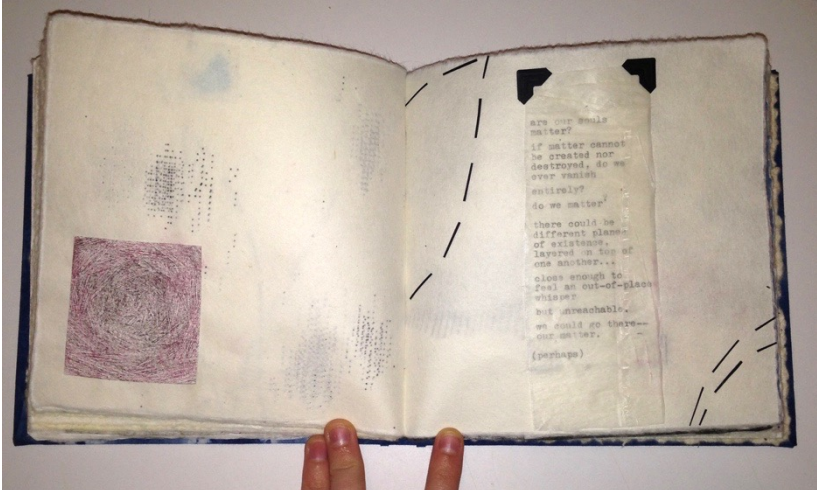 are our souls
matter?
if matter cannot
be created nor
destroyed, do we
ever vanish
entirely?
do we matter?
there could be
different planes
of existence,
layered on top of
one another...
close enough to
feel an out-of-place
whisper
but unreachable.
we could go there--
our matter.
(perhaps)